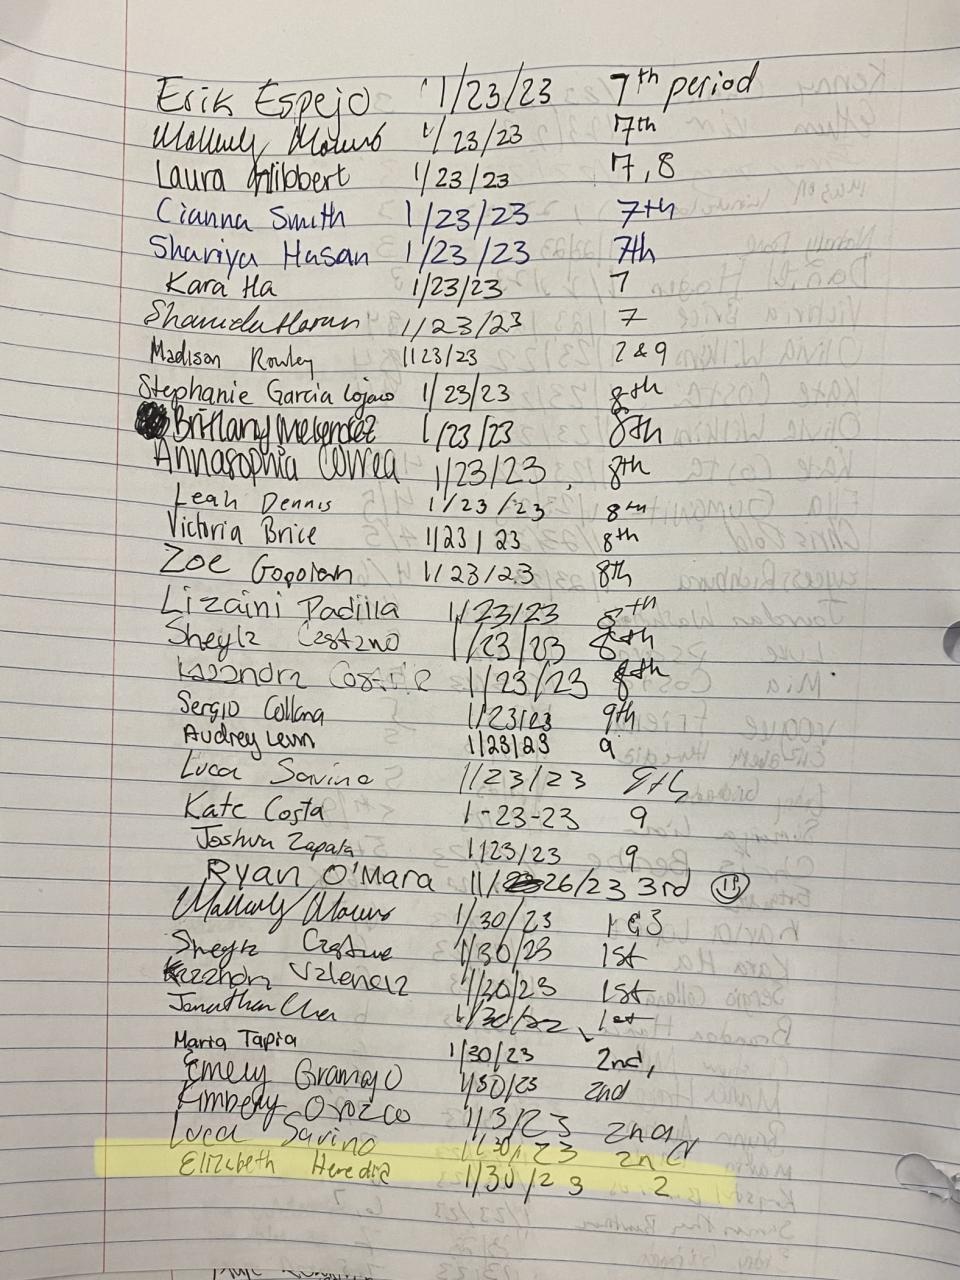 Erik Espejo 1/23/23 7th period
1/23/23 7th
Laura Hibbert 1/23/23 7,8
Cianna Smith 1/23/23 7th
Shariya Hasan 1/23/23 7th
Kara Ha 1/23/23 7
1/23/23 7
Madison Rowley 1/23/23 2 & 9
Stephanie Garcia 1/23/23 8th
Brittany Melendez 1/23/23 8th
Annasophia Correa 1/23/23 8th
Leah Dennis 1/23/23 8th
Victoria Brice 1/23/23 8th
Zoe 1/23/23 8th
Lizaini Padilla 1/23/23 8th
Sheyla Castano 1/23/23 8th
1/23/23 8th
Sergio Collana 1/23/23 9th
Audrey Levin 1/23/23 9
Luca Savino 1/23/23 9th
Kate Costa 1-23-23 9
Joshua Zapata 1/23/23 9
Ryan O'Mara 11/26/23 3rd
1/30/23 1 & 3
Sheyla 1/30/23 1st
1st
Jonathan 1st
Maria Tapia 1/30/23 2nd,
Emely 1/30/23 2nd
Kimberly Orozco 1/3/23 2nd
Luca Savino 1/30/23 2nd
Elizabeth Heredia 1/30/23 2